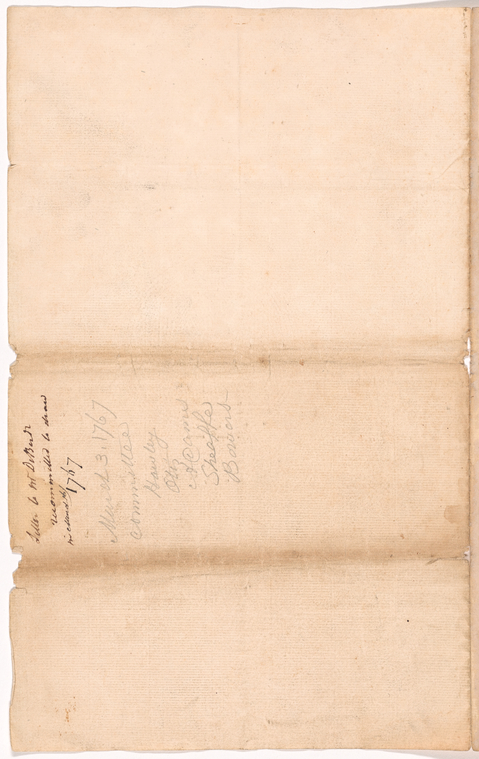 Letter to Mr DeBerdt
recommitted to draw
1767
March 3. 1767
Committee
Hawley
Otis
Adams
Sheaffe
Bowers